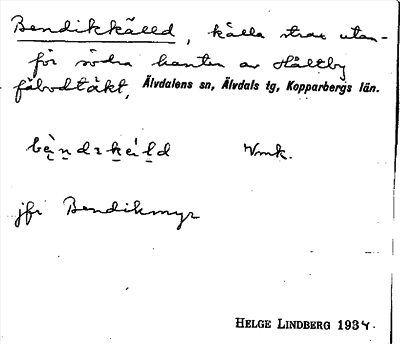 Bendikkälld, källa strax utan-
för södra kanten av Hållby
fäbodtäkt, Älvdalens sn, Älvdals tg, Kopparbergs län.
Vmk.
jfr Bendikmyr
HELGE LINDBERG 1934.